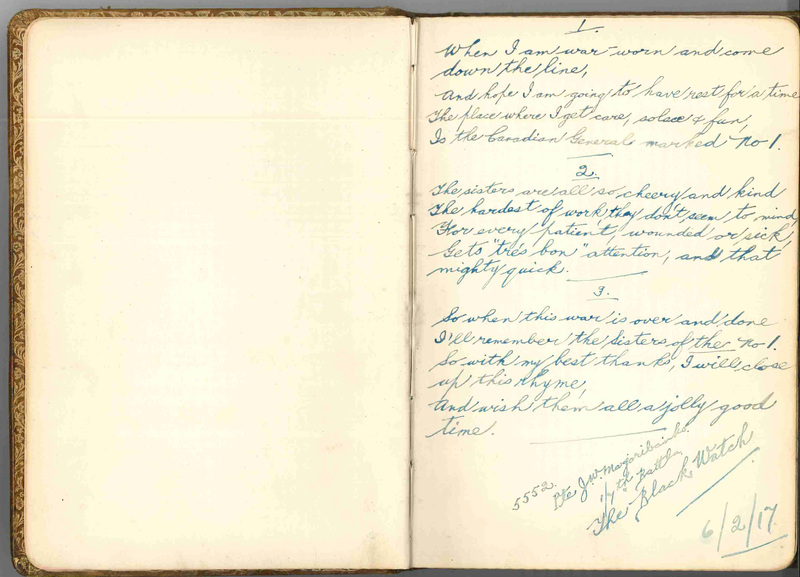 1.
When I am war-worn and come
down the line,
And hope I am going to have rest for a time
The place where I get care, solace & fun,
Is the Canadian General marked No 1.
2.
The sisters are all so cheery and kind
The hardest of work they don't seem to mind
For every patient, wounded or sick,
Gets "très bon" attention, and that
mighty quick.
3.
So when this war is over and done
I'll remember the Sisters of the No 1.
So with my best thanks, I will close
up this rhyme,
And wish them all a jolly good
time.
5552. Pte J.W. Marjoribanks.
1/7th Battln
The Black Watch
6/2/17.